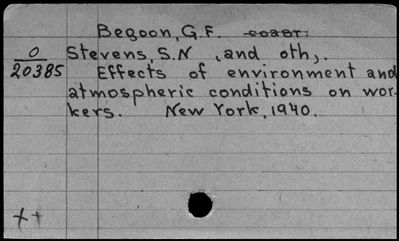 Begoon, G.F. coast.
O Stevens, S.N., and oth,.
20385 Effects of environment and
atmospheric conditions on wor-
kers. New York, 1940.
++